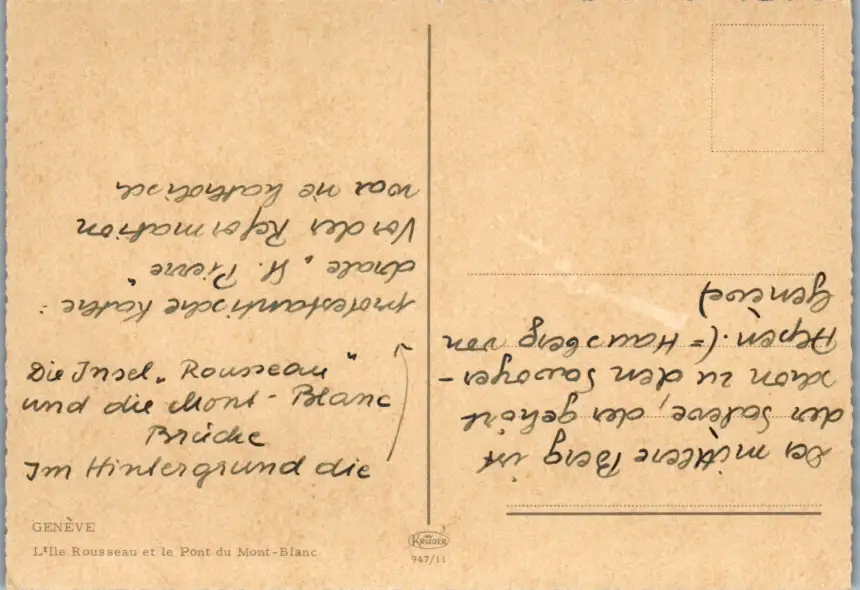 Die Insel „Rousseau"
und die Mont-Blanc
Brücke
Im Hintergrund die
protestantische Kathe:
drale „St. Pierre"
Vor der Reformation
war sie katholisch
Der mittlere Berg ist
der Salève, der gehört
schon zu den Savoyer-
Alpen. (= Hausberg von
Genève)
GENÈVE
L'Ile Rousseau et le Pont du Mont-Blanc
KRÜGER
947/11